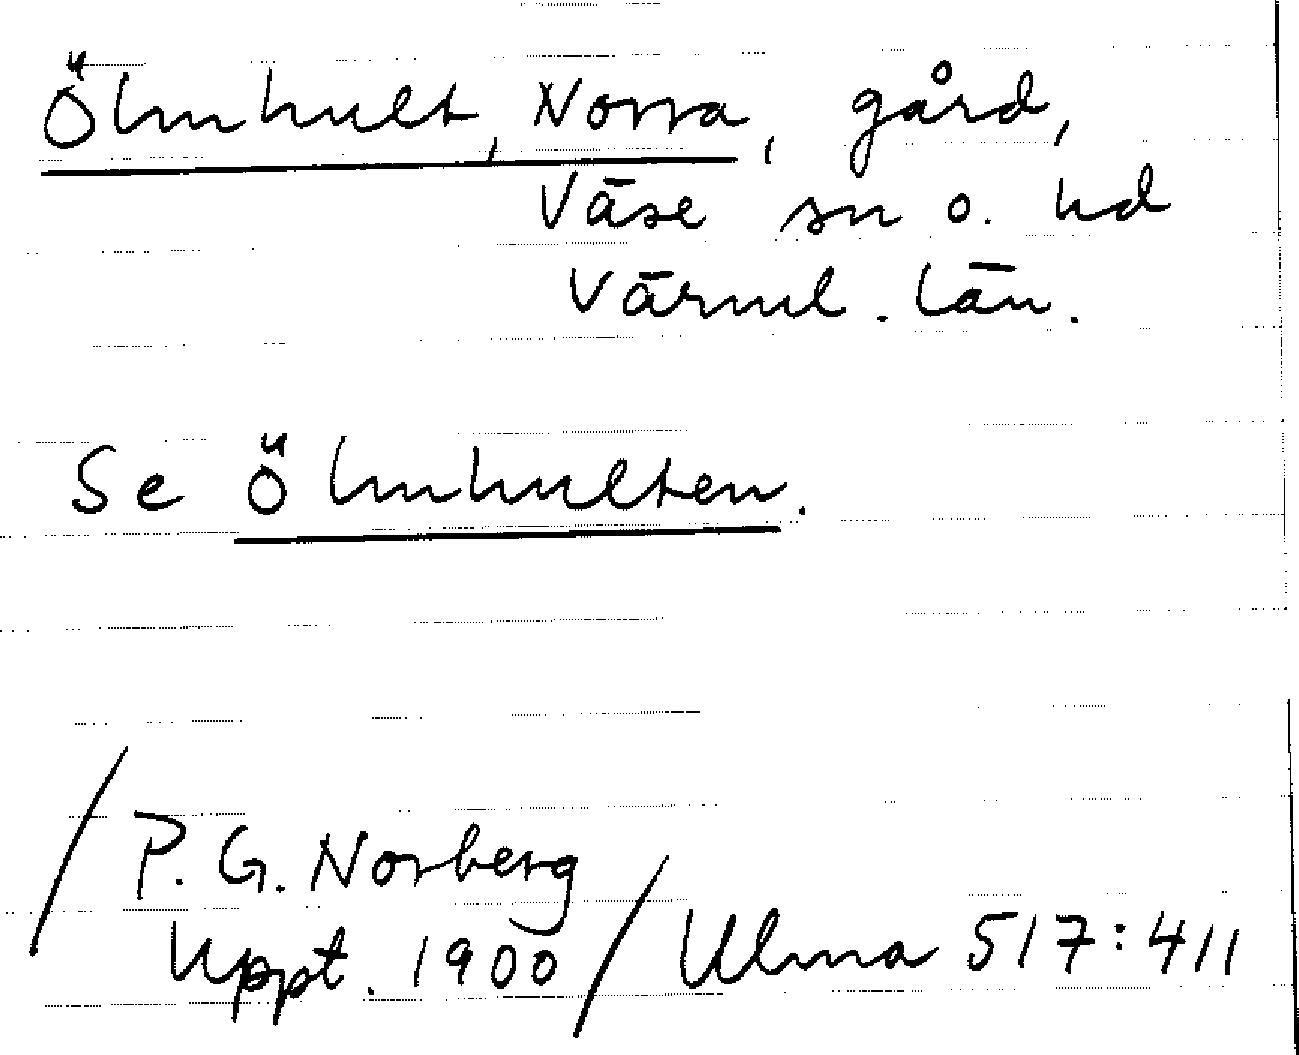 Ölmhult, Norra, gård,
Väse sn o. hd
Värml. län.
Se Ölmhulten.
/P. G. Norberg
uppt. 1900/ Ulma 517:411